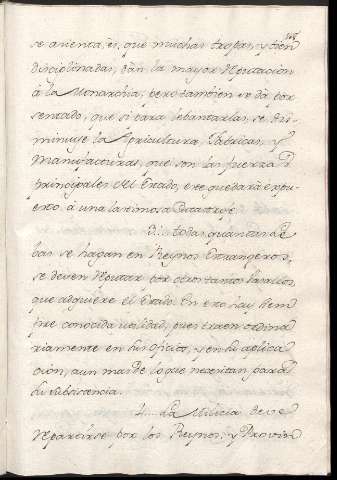 168
se asienta, es, que muchas tropas, y bien
disciplinadas, dàn la mayor reputacion
à la Monarchia, pero tambien se dà por
sentado, que si para lebantarlas, se dis-
minuye la Agricultura, Fabricas, y
Manufacturas, que son las fuerzas
principales del Estado, este quedarà expu-
esto à una lastimosa
3. todas quantas Le-
bas se hagan en Reynos Estrangeros,
se deven reputar por otros tantos Vasallos,
que adquiere el Estado. En esto hay siem
pre conocida utilidad, pues traen ordina
riamente en sus oficios, y en su aplica
cion, aun mas de lo que necesitan para
su subsistencia.
4. La Milicia deve
repartirse por los Reynos, y Provin